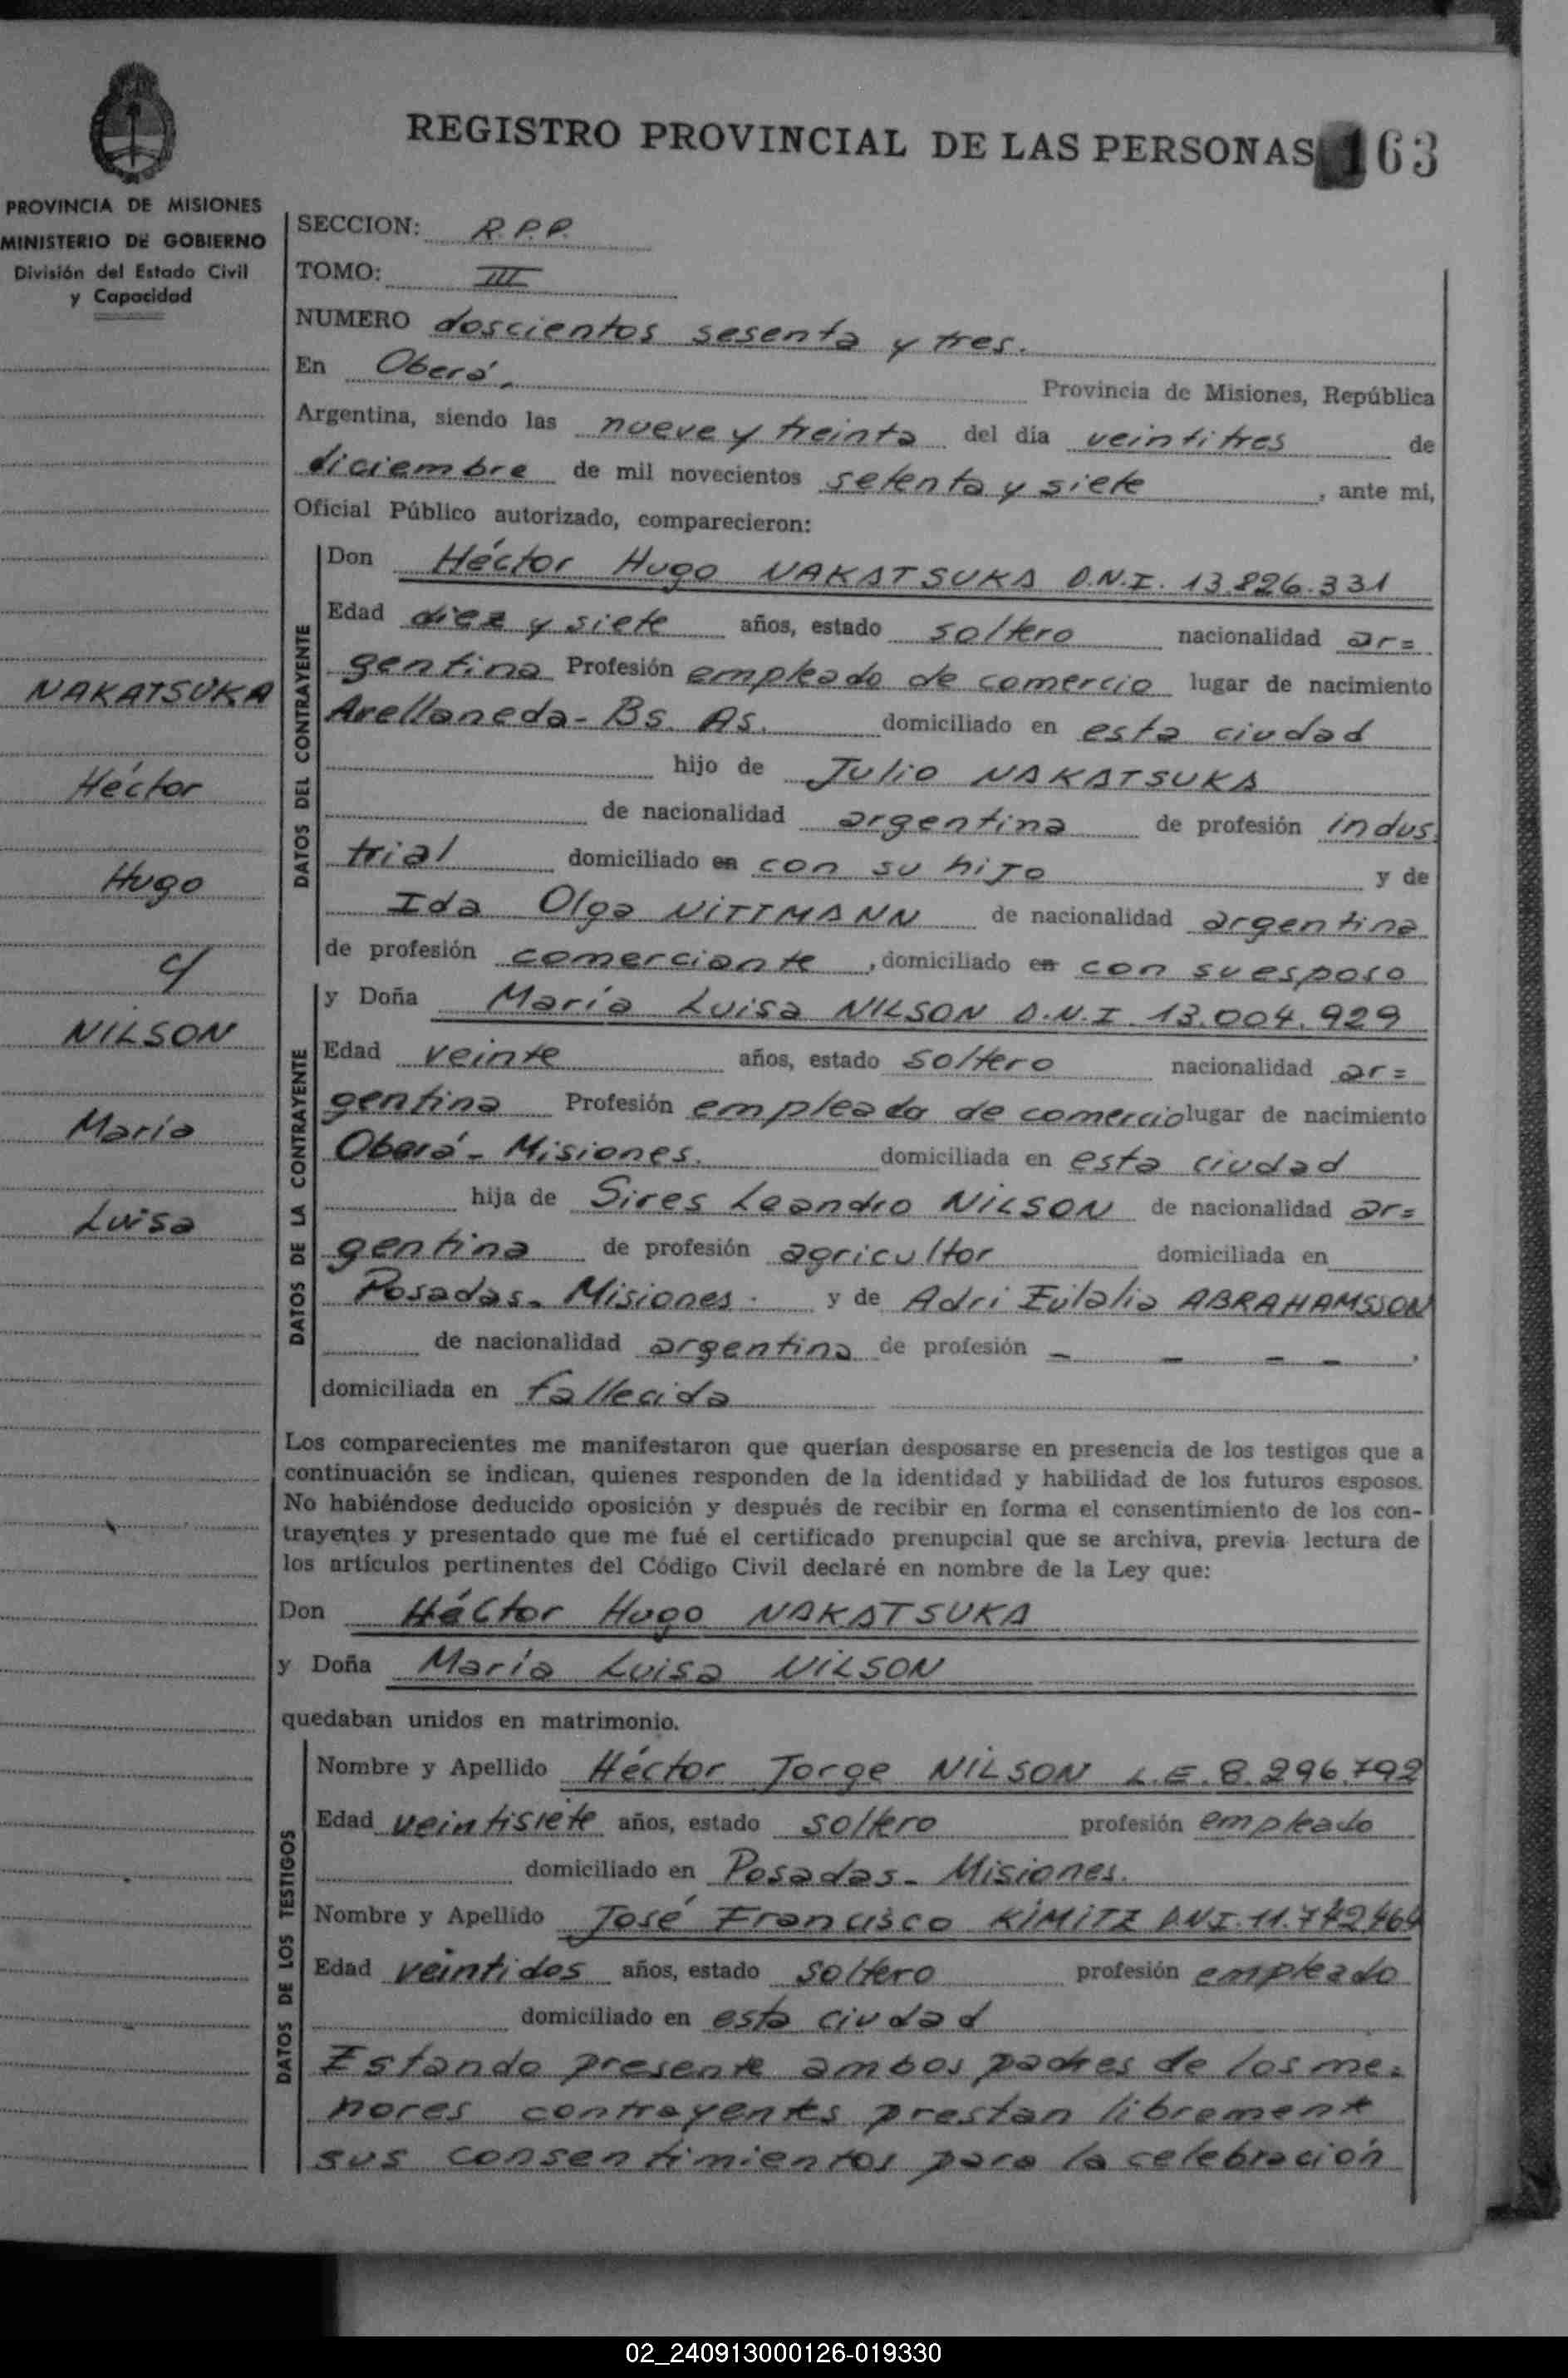 REGISTRO PROVINCIAL DE LAS PERSONAS 163
PROVINCIA DE MISIONES
MINISTERIO DE GOBIERNO
División del Estado Civil
y Capacidad
SECCION: R.P.P.
TOMO: III
NUMERO doscientos sesenta y tres.
En Oberá, Provincia de Misiones, República
Argentina, siendo las nueve y treinta del día veintitres de
diciembre de mil novecientos setenta y siete, ante mi,
Oficial Público autorizado, comparecieron:
NAKATSUKA
Héctor
Hugo
c/
NILSON
María
Luisa
DATOS DEL CONTRAYENTE
Don Héctor Hugo NAKATSUKA D.N.I. 13.826.331
Edad diez y siete años, estado soltero nacionalidad ar=
gentina Profesión empleado de comercio lugar de nacimiento
Avellaneda- Bs. As. domiciliado en esta ciudad
hijo de Julio NAKATSUKA
de nacionalidad argentina de profesión indus
trial domiciliado en con su hijo y de
Ida Olga NITTMANN de nacionalidad argentina
de profesión comerciante, domiciliado en con su esposo
DATOS DE LA CONTRAYENTE
y Doña María Luisa NILSON D.N.I. 13.004.929
Edad veinte años, estado soltero nacionalidad ar=
gentina Profesión empleada de comercio lugar de nacimiento
Oberá- Misiones. domiciliada en esta ciudad
hija de Sires Leandro NILSON de nacionalidad ar=
gentina de profesión agricultor domiciliada en
Posadas- Misiones. y de Adri Eulalia ABRAHAMSSON
de nacionalidad argentina de profesión - - - -,
domiciliada en fallecida
Los comparecientes me manifestaron que querían desposarse en presencia de los testigos que a
continuación se indican, quienes responden de la identidad y habilidad de los futuros esposos.
No habiéndose deducido oposición y después de recibir en forma el consentimiento de los con-
trayentes y presentado que me fué el certificado prenupcial que se archiva, previa lectura de
los artículos pertinentes del Código Civil declaré en nombre de la Ley que:
Don Héctor Hugo NAKATSUKA
y Doña María Luisa NILSON
quedaban unidos en matrimonio.
DATOS DE LOS TESTIGOS
Nombre y Apellido Héctor Jorge NILSON L.E. 8.296.792
Edad veintisiete años, estado soltero profesión empleado
domiciliado en Posadas- Misiones.
Nombre y Apellido José Francisco KIMITZ D.N.I.
Edad veintidos años, estado soltero profesión empleado
domiciliado en esta ciudad
Estando presente ambos padres de los me=
nores contrayentes prestan librement
sus consentimientos para la celebración
02_240913000126-019330